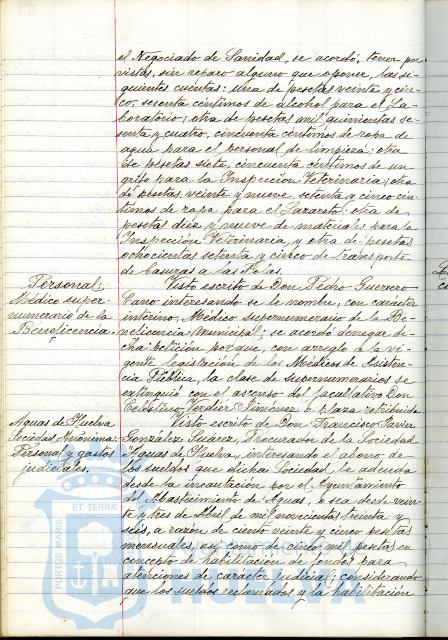 el Negociado de Sanidad, se acordó, tener por
vistas, sin reparo alguno que oponer, las si-
guientes cuentas: una de pesetas veinte y cin-
co, sesenta céntimos de alcohol para el La-
boratorio; otra de pesetas mil quinientas se-
senta y cuatro, cincuenta céntimos de ropa de
agua para el personal de limpieza; otra
de pesetas siete, cincuenta céntimos de un
grifo para la Inspección Veterinaria; otra
de pesetas, veinte y nueve, setenta y cinco cén-
timos de ropa para el Lazareto; otra de
pesetas diez y nueve de materiales para la
Inspección Veterinaria, y otra de pesetas
ochocientas setenta y cinco de transporte
de basuras a las Islas.
Personal:
Médico super-
numerario de la
Beneficencia.
Visto escrito de Don Pedro Guerrero
Cano interesando se le nombre, con carácter
interino, Médico supernumerario de la Be-
neficencia Municipal; se acordó denegar di-
cha petición porque, con arreglo a la vi-
gente legislación de los Médicos de Asisten-
cia Pública, la clase de supernumerarios se
extinguió con el ascenso del facultativo Don
Celestino Verdier Jiménez a plaza retribuida.
Aguas de Huelva
Sociedad Anónima:
Personal y gastos
judiciales.
Visto escrito de Don Francisco Javier
González Suárez, Procurador de la Sociedad
Aguas de Huelva, interesando el abono de
los sueldos que dicha Sociedad le adeuda
desde la incautación por el Ayuntamiento
del Abastecimiento de Aguas, o sea desde vein-
te y tres de Abril de mil novecientos treinta y
seis, a razón de ciento veinte y cinco pesetas
mensuales, así como de cinco mil pesetas en
concepto de habilitación de fondos para
atenciones de carácter judicial; considerando
que los sueldos reclamados y la habilitación
PORTUS MARIS
ET TERRÆ
HUELVA